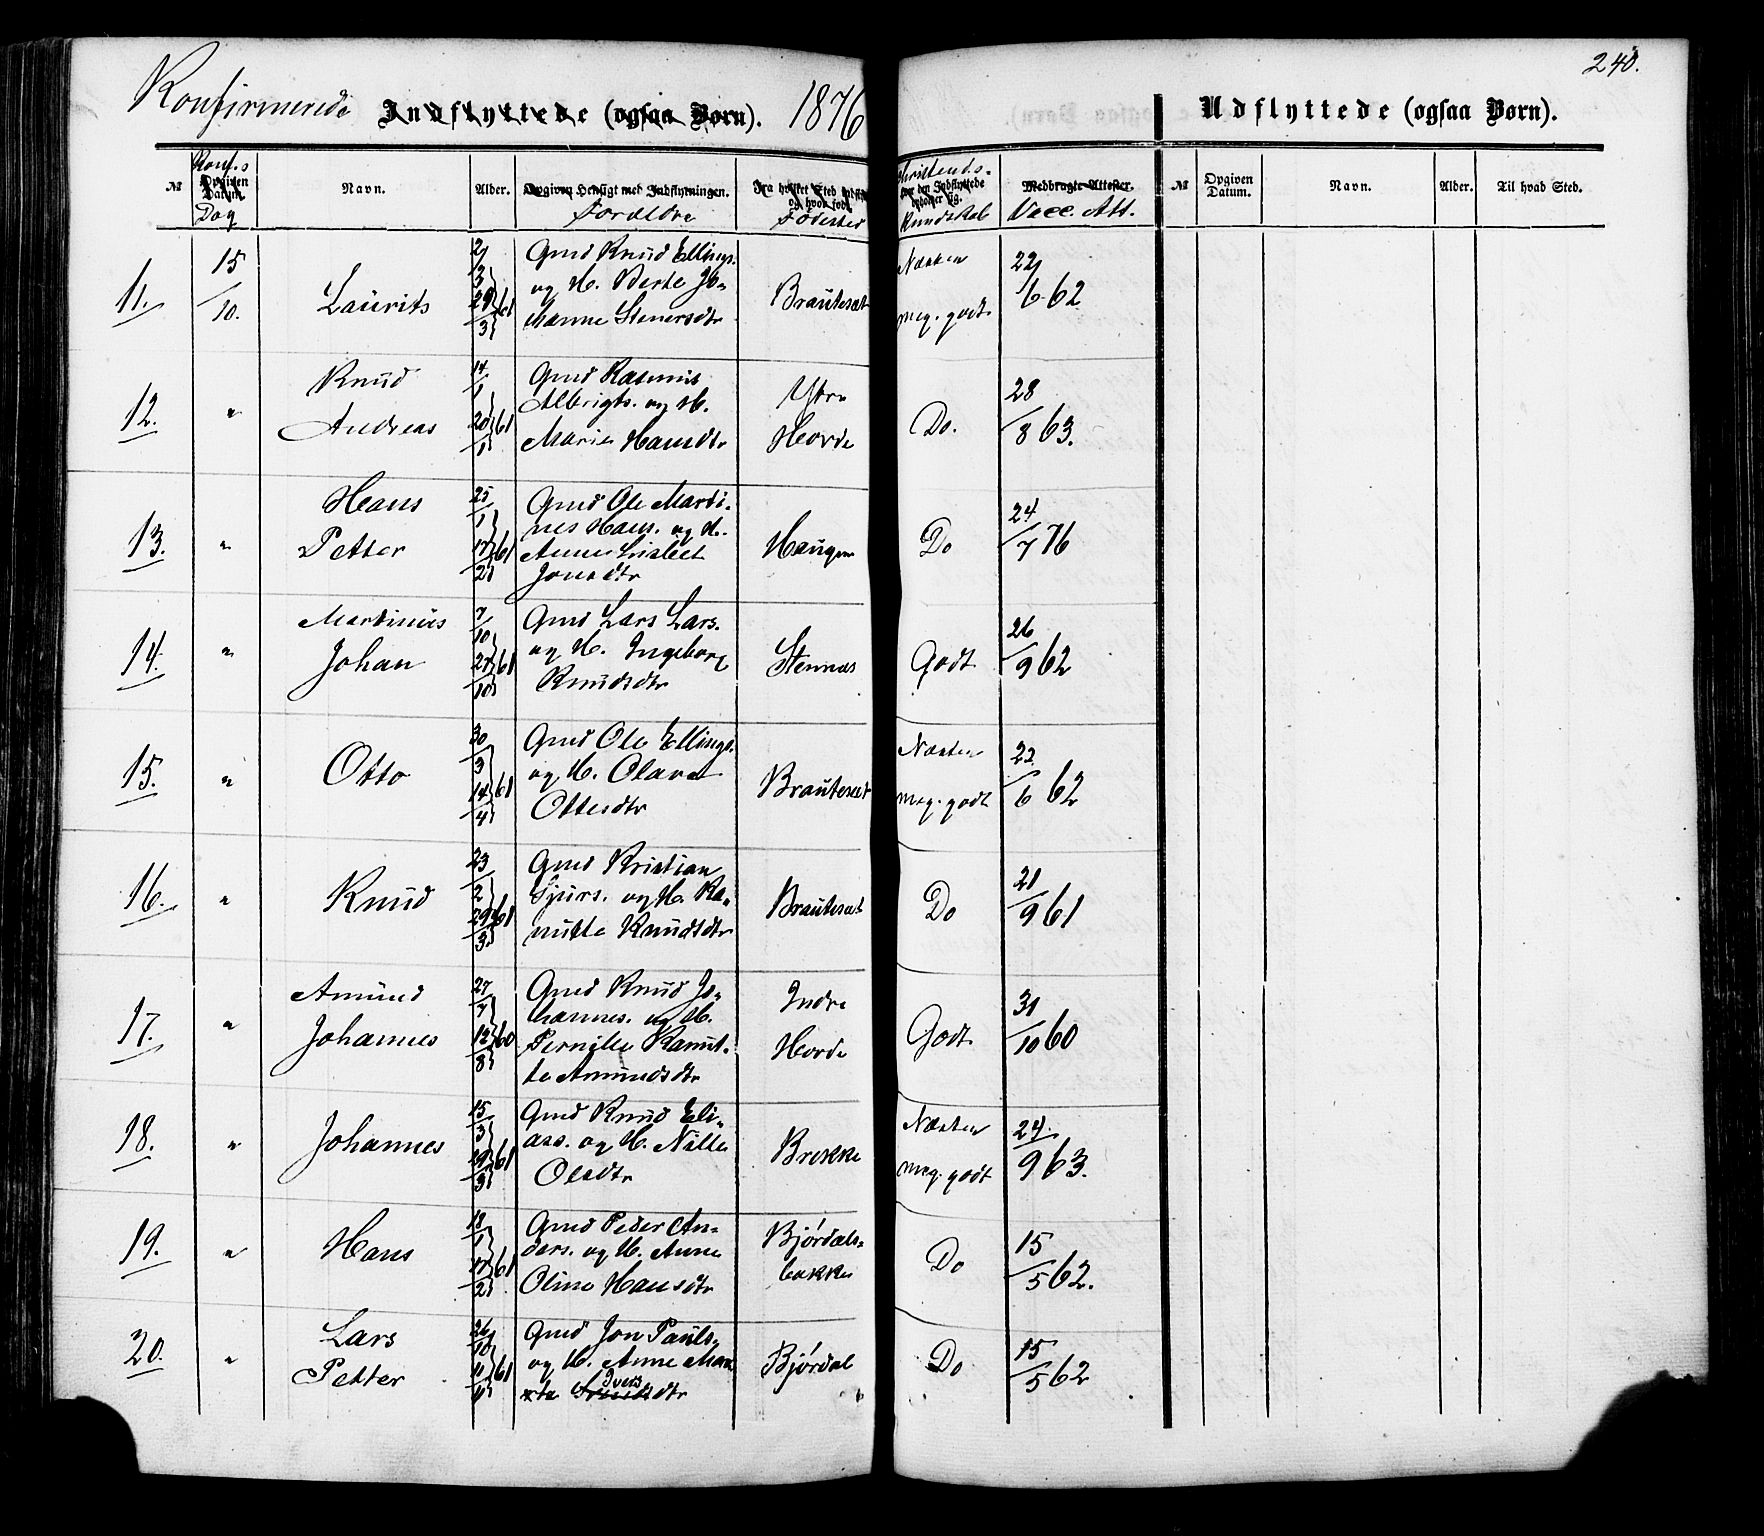 240.
Konfirmerede Indflyttede (ogsaa Børn). 1876
Udflyttede (ogsaa Børn).
№ Konf.s Opgiven Datum. Dag Navn. Alder. Opgiven Hensigt med Indflytningen. Forældre Fra hvilket Sted og hvor født. Fødested Christends. Kundskab Medbragte Attester. Vacc. Att.
№ Opgiven Datum. Navn. Alder. Til hvad Sted.
11. 15/10. Laurits 2/3 29/3 61 Gmd Knud Ellings. og H. Berte Jo- hanne Stenersdtr Brautesæt Næsten meg. godt 22/6 62
12. " Knud Andreas 14/1 20/1 61 Gmd Rasmus Albrigts. og H. Marie Hansdtr Ytre Hovde Do. 28/8 63.
13. " Hans Petter 25/1 17/2 61 Gmd Ole Marti- nes Hans. og H. Anne Lisbet Jonsdtr Haugen Do 24/7 76
14. " Martinius Johan 7/10 27/10 61 Gmd Lars Lars. og H. Ingeborg Knudsdtr Stennæs Godt 26/9 62
15. " Otto 30/3 14/4 61 Gmd Ole Ellings. og H. Olava Ottesdtr Brautesæt Næsten meg. godt 22/6 62
16. " Knud 23/2 29/3 61 Gmd Kristian Sjurs. og H. Ra- nutte Knudsdtr Brautesæt Do 21/9 61
17. " Amund Johannes 27/7 12/8 60 Gmd Knud Jo- hannes. og H. Pernille Ranut- te Amundsdtr Indre Hovde Godt 31/10 60
18. " Johannes 15/3 19/3 61 Gmd Knud Eli- ass. og H. Nille Olsdtr Brekke Næsten meg. godt 24/9 63.
19. " Hans 18/1 17/2 61 Gmd Peder An- ders. og H. Anne Oline Hansdtr Bjørdals- bakke Do 15/5 62.
20. " Lars Petter 26/10 11/11 61 Gmd Jon Pauls. og H. Anne Mar- te Iversdtr Bjørdal Do 15/5 62